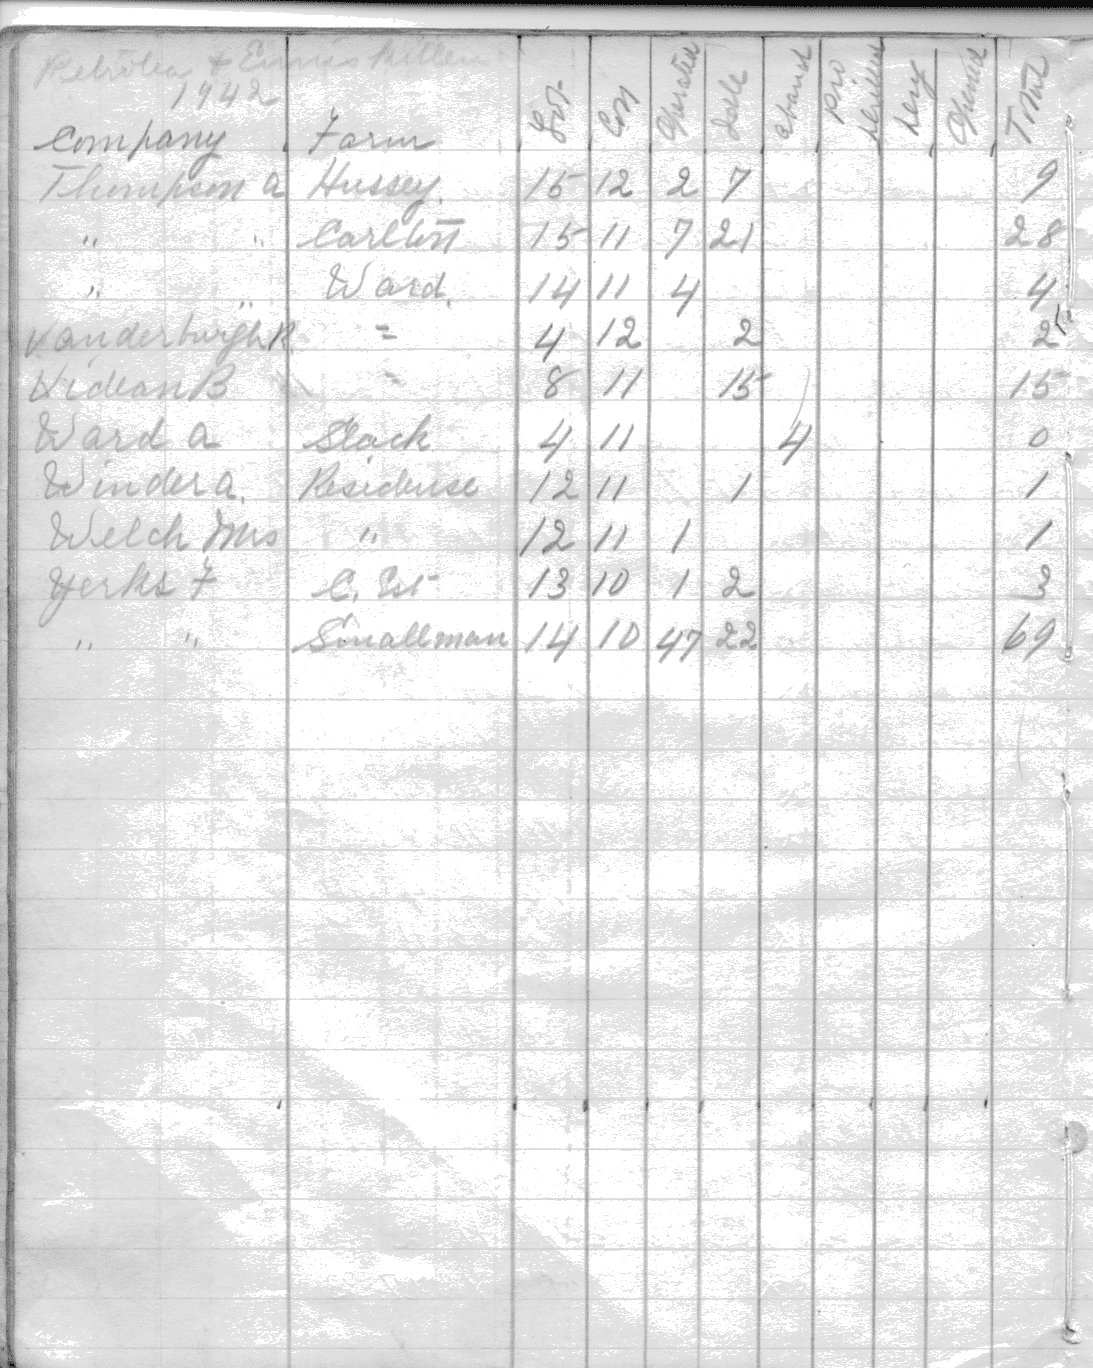 Petrolea & Enniskillen
1942
Company Farm Lot Con Operated Idle Aband Pro Drilled Dry Opened Total
Thompson A Hussey. 15 12 2 7 9
" " Carlton 15 11 7 21 28
" " Ward. 14 11 4 4
Vanderburgh R = 4 12 2 2
Videan B 8 11 15 15
Ward A Slack 4 11 4 0
Winder A. Residense 12 11 1 1
Welch Mrs " 12 11 1 1
Yerks F C. Est 13 10 1 2 3
" " Smallman 14 10 47 22 69